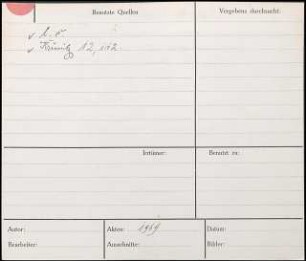 Benutzte Quellen
Vergebens durchsucht:
v L. F.
v Krünitz 12, 112
Irrtümer:
Benutzt zu:
Autor:
Akten: 1959
Datum:
Bearbeiter:
Ausschnitte:
Bilder: